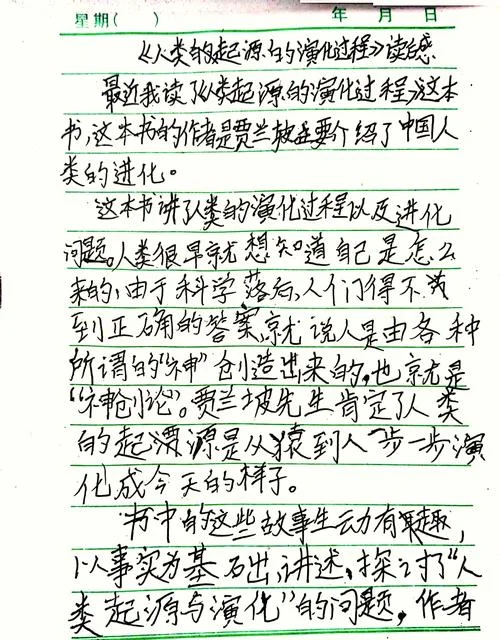 星期（ ） 年 月 日
《人类的起源的演化过程》读后感
最近我读了《人类起源的演化过程》这本
书，这本书的作者是贾兰坡主要介绍了中国人
类的进化。
这本书讲了人类的演化过程以及进化
问题。人类很早就想知道自己是怎么
来的，由于科学落后，人们得不
到正确的答案，就说人是由各种
所谓的“神”创造出来的，也就是
“神创论”。贾兰坡先生肯定了人类
的起源是从猿到人一步一步演
化成今天的样子。
书中的这些故事生动有趣，
以事实为基石出，讲述、探讨了“人
类起源与演化”的问题，作者